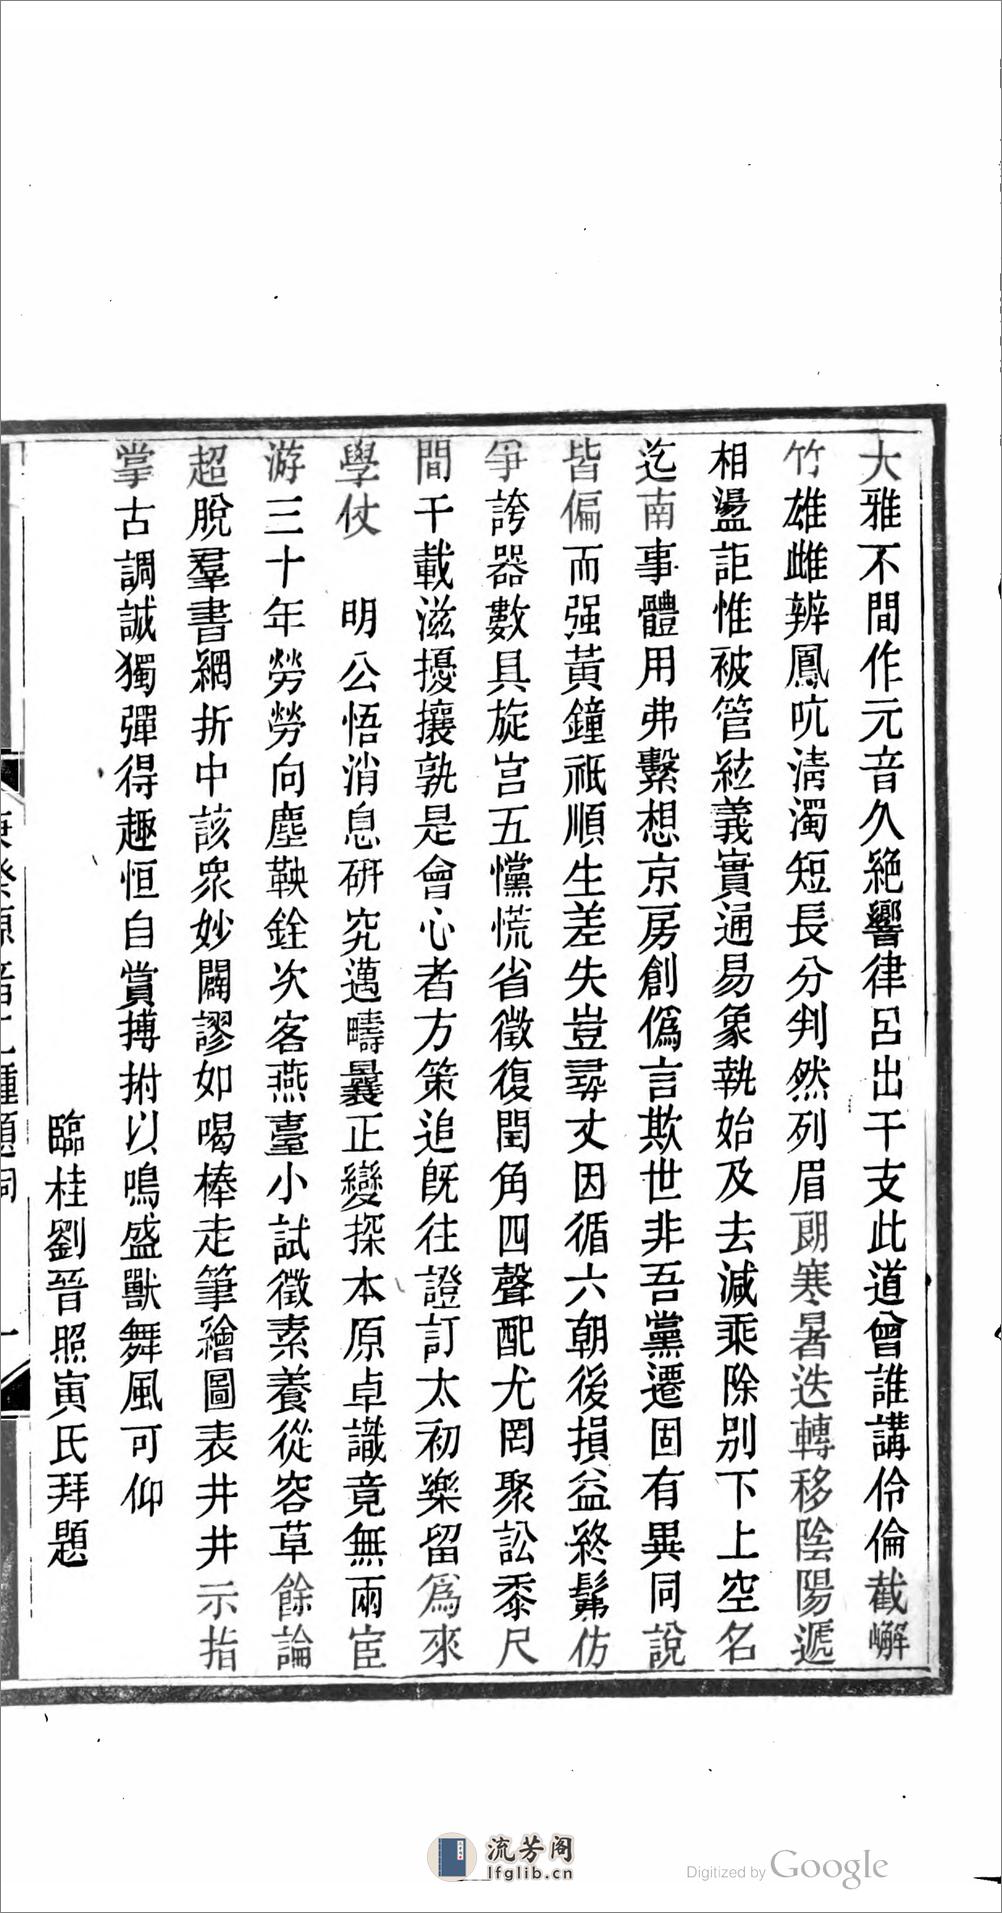 大雅不間作元音久絶響律呂出干支此道曾誰講伶倫截嶰
竹雄雌辨鳳吭淸濁短長分判然列眉朗寒暑迭轉移陰陽遞
相盪詎惟被管絃義實通易象執始及去滅乘除別下上空名
迄南事體用弗繫想京房創僞言欺世非吾黨遷固有異同說
皆偏而强黃鐘祇順生差失豈尋丈因循六朝後損益終髴仿
爭誇器數具旋宮五懭慌省徵復閏角四聲配尤罔聚訟黍尺
間千載滋擾攘孰是會心者方策追旣往證訂太初樂留爲來
學仗　明公悟消息硏究邁疇曩正變探本原卓識竟無兩宦
游三十年勞勞向塵鞅銓次客燕臺小試徵素養從容草餘論
超脫羣書網折中該衆妙闢謬如喝棒走筆繪圖表井井示指
掌古調誠獨彈得趣恒自賞搏拊以鳴盛獸舞風可仰
臨桂劉晉照寅氏拜題
流芳阁
lfglib.cn
Digitized by Google